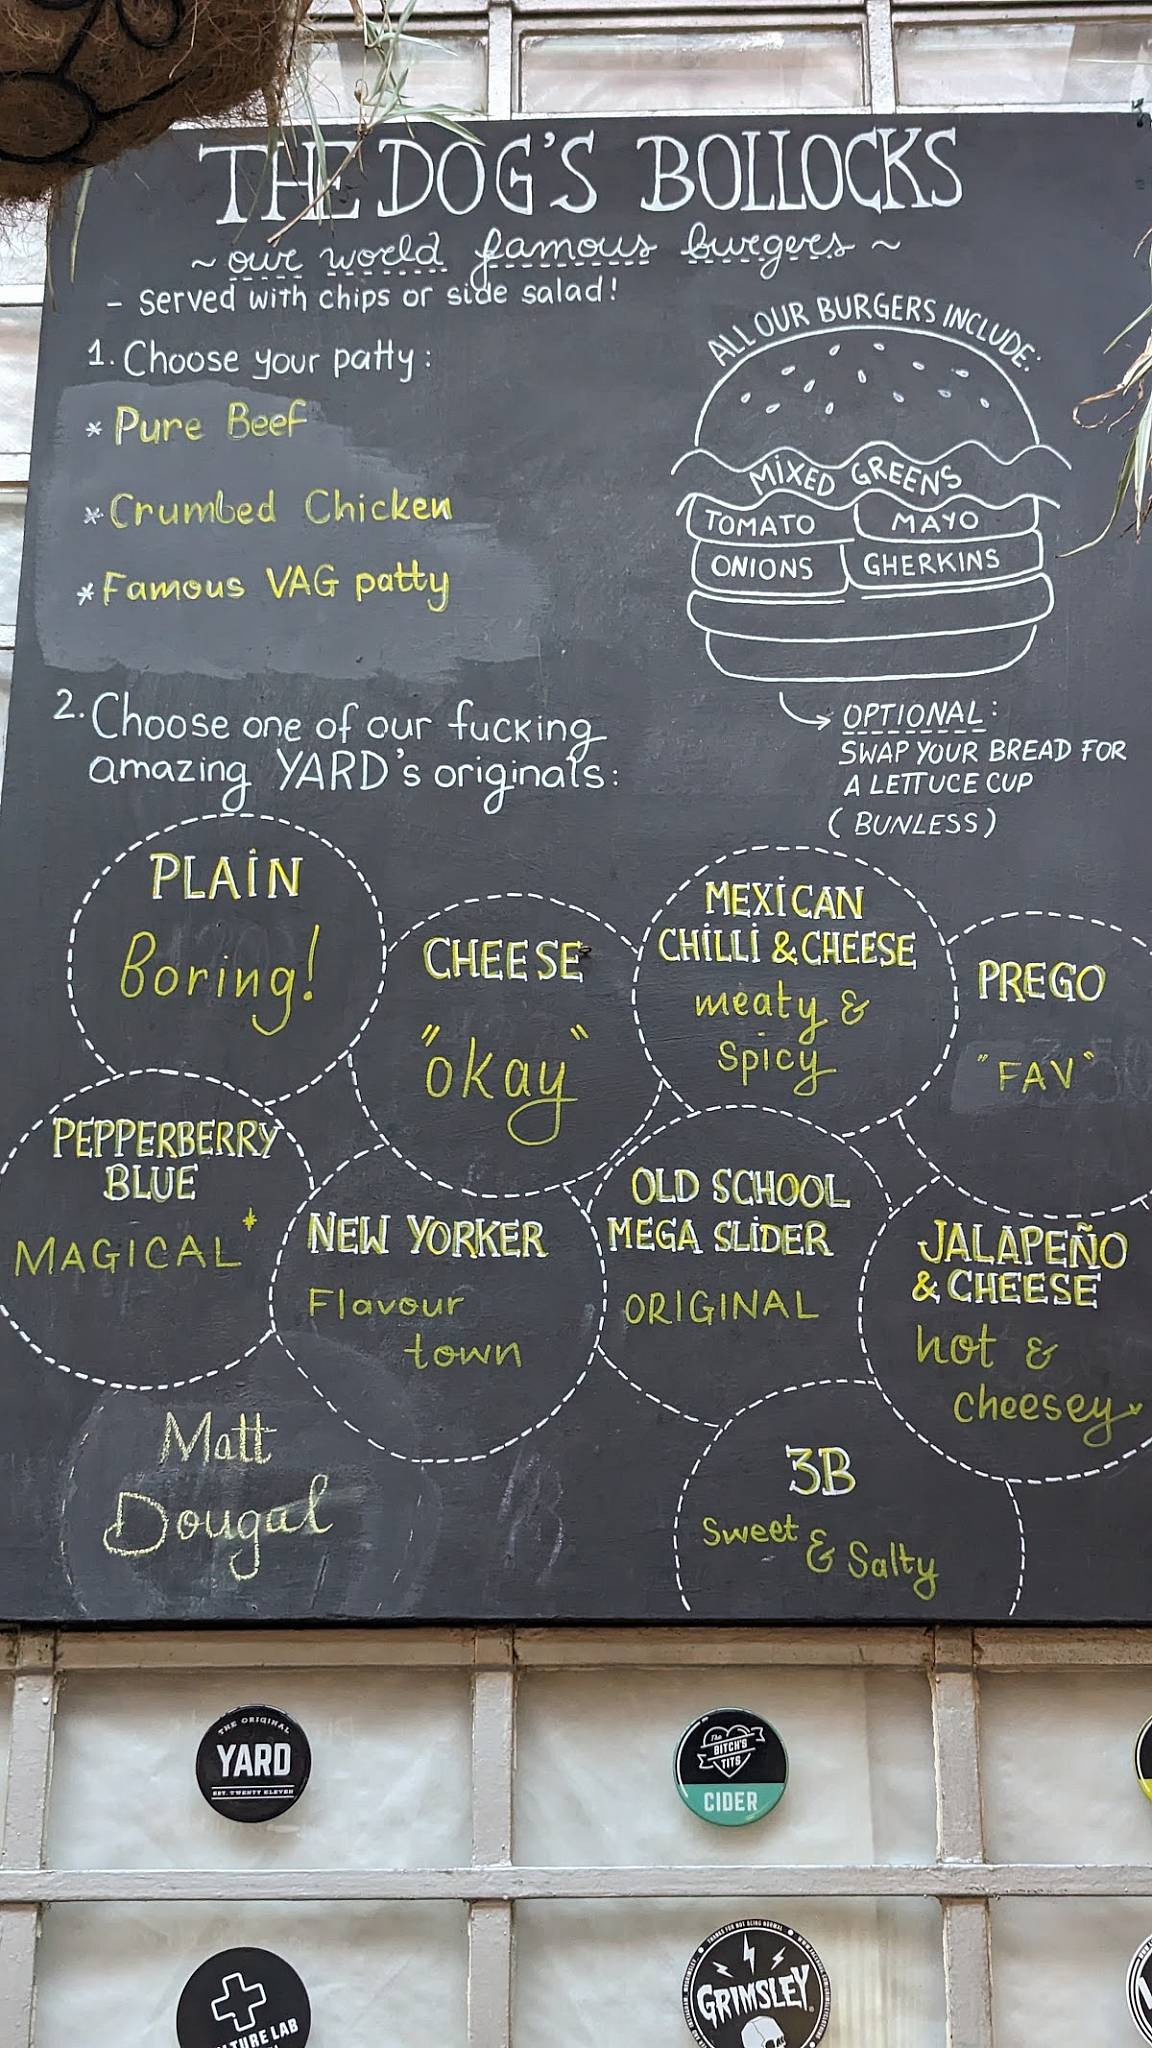 THE DOG'S BOLLOCKS
~ our world famous burgers ~
- served with chips or side salad!
1. Choose your patty:
* Pure Beef
* Crumbed Chicken
* Famous VAG patty
ALL OUR BURGERS INCLUDE:
MIXED GREENS
TOMATO MAYO
ONIONS GHERKINS
OPTIONAL:
SWAP YOUR BREAD FOR
A LETTUCE CUP
(BUNLESS)
2. Choose one of our fucking
amazing YARD's originals:
PLAIN
Boring!
CHEESE
"okay"
MEXICAN
CHILLI & CHEESE
meaty &
Spicy
PREGO
"FAV"
PEPPERBERRY
BLUE
MAGICAL*
NEW YORKER
Flavour
town
OLD SCHOOL
MEGA SLIDER
ORIGINAL
JALAPEÑO
& CHEESE
hot &
cheesey
Matt
Dougal
3B
Sweet & Salty
THE ORIGINAL
YARD
EST. TWENTY ELEVEN
The
BITCH'S
TITS
CIDER
THANKS FOR NOT BEING NORMAL
GRIMSLEY
LAB